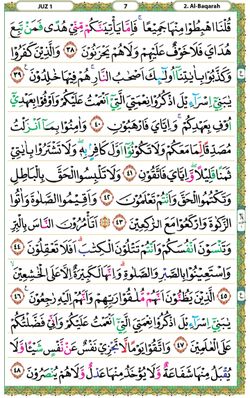 JUZ 1 7 2. Al-Baqarah
قُلْنَا اهْبِطُوْا مِنْهَا جَمِيْعًا ۚ فَاِمَّا يَأْتِيَنَّكُمْ مِّنِّيْ هُدًى فَمَنْ تَبِعَ
هُدَايَ فَلَا خَوْفٌ عَلَيْهِمْ وَلَا هُمْ يَحْزَنُوْنَ ﴿٣٨﴾ وَالَّذِيْنَ كَفَرُوْا
وَكَذَّبُوْا بِاٰيٰتِنَآ اُولٰٓئِكَ اَصْحٰبُ النَّارِ ۚ هُمْ فِيْهَا خٰلِدُوْنَ ﴿٣٩﴾
يٰبَنِيْٓ اِسْرَآءِيْلَ اذْكُرُوْا نِعْمَتِيَ الَّتِيْٓ اَنْعَمْتُ عَلَيْكُمْ وَاَوْفُوْا بِعَهْدِيْٓ
اُوْفِ بِعَهْدِكُمْ ۚ وَاِيَّايَ فَارْهَبُوْنِ ﴿٤٠﴾ وَاٰمِنُوْا بِمَآ اَنْزَلْتُ
مُصَدِّقًا لِّمَا مَعَكُمْ وَلَا تَكُوْنُوْٓا اَوَّلَ كَافِرٍۢ بِهٖ ۖ وَلَا تَشْتَرُوْا بِاٰيٰتِيْ
ثَمَنًا قَلِيْلًا ۖ وَاِيَّايَ فَاتَّقُوْنِ ﴿٤١﴾ وَلَا تَلْبِسُوا الْحَقَّ بِالْبَاطِلِ
وَتَكْتُمُوا الْحَقَّ وَاَنْتُمْ تَعْلَمُوْنَ ﴿٤٢﴾ وَاَقِيْمُوا الصَّلٰوةَ وَاٰتُوا
الزَّكٰوةَ وَارْكَعُوْا مَعَ الرّٰكِعِيْنَ ﴿٤٣﴾ اَتَأْمُرُوْنَ النَّاسَ بِالْبِرِّ
وَتَنْسَوْنَ اَنْفُسَكُمْ وَاَنْتُمْ تَتْلُوْنَ الْكِتٰبَ ۗ اَفَلَا تَعْقِلُوْنَ ﴿٤٤﴾
وَاسْتَعِيْنُوْا بِالصَّبْرِ وَالصَّلٰوةِ ۗ وَاِنَّهَا لَكَبِيْرَةٌ اِلَّا عَلَى الْخٰشِعِيْنَ
﴿٤٥﴾ الَّذِيْنَ يَظُنُّوْنَ اَنَّهُمْ مُّلٰقُوْا رَبِّهِمْ وَاَنَّهُمْ اِلَيْهِ رٰجِعُوْنَ ﴿٤٦﴾
يٰبَنِيْٓ اِسْرَآءِيْلَ اذْكُرُوْا نِعْمَتِيَ الَّتِيْٓ اَنْعَمْتُ عَلَيْكُمْ وَاَنِّيْ فَضَّلْتُكُمْ
عَلَى الْعٰلَمِيْنَ ﴿٤٧﴾ وَاتَّقُوْا يَوْمًا لَّا تَجْزِيْ نَفْسٌ عَنْ نَّفْسٍ شَيْـًٔا وَّلَا
يُقْبَلُ مِنْهَا شَفَاعَةٌ وَّلَا يُؤْخَذُ مِنْهَا عَدْلٌ وَّلَا هُمْ يُنْصَرُوْنَ ﴿٤٨﴾